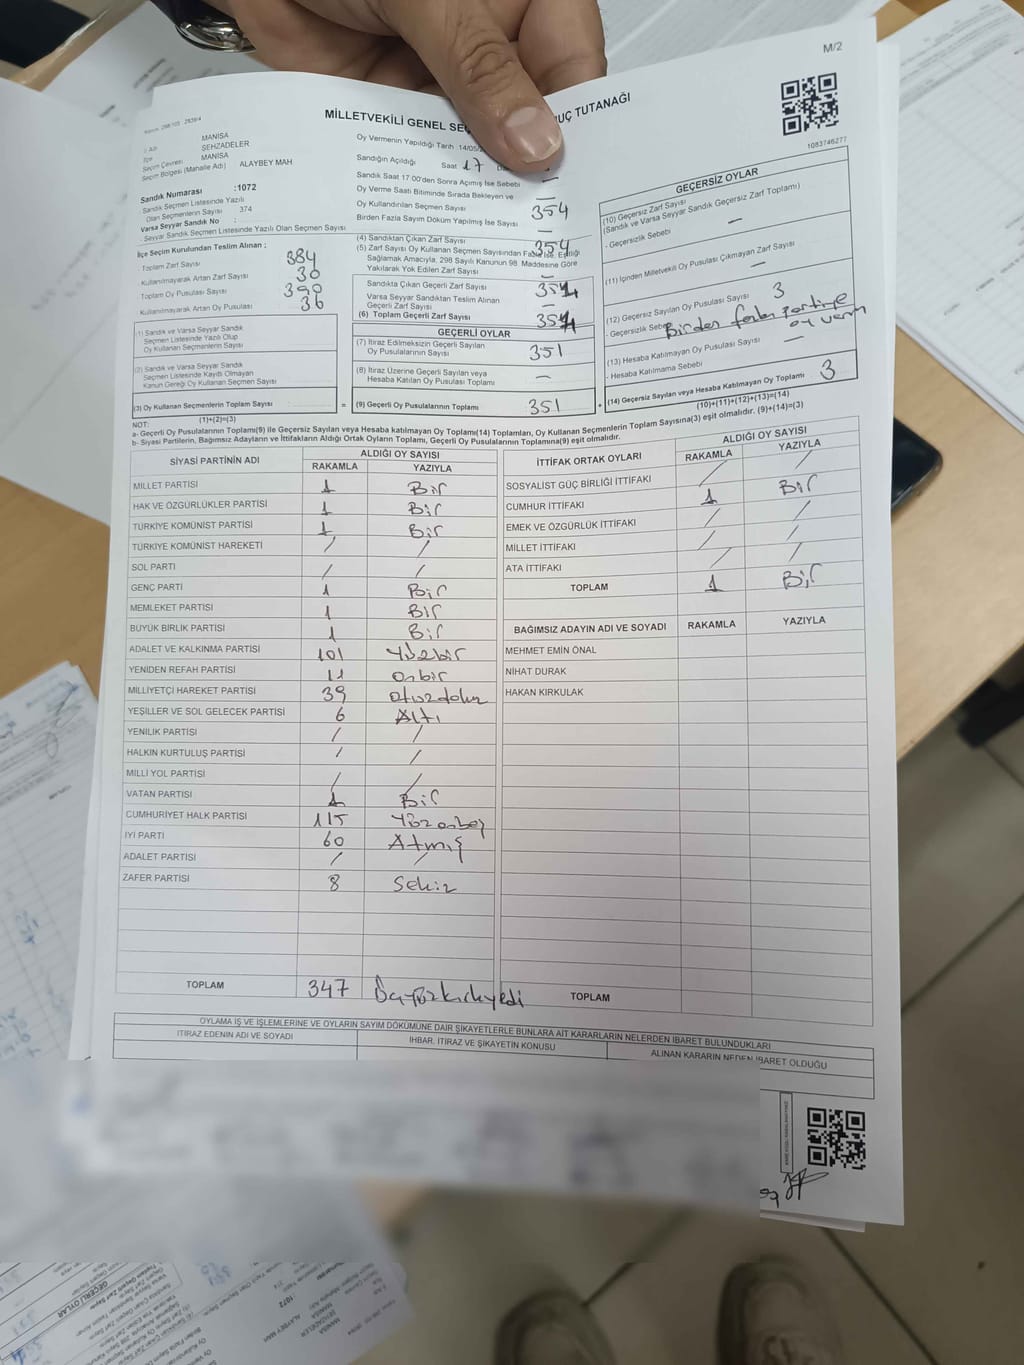 M/2
MİLLETVEKİLİ GENEL SEÇ UÇ TUTANAĞI
1083746277
MANİSA
İlçe ŞEHZADELER
Seçim Çevresi MANİSA
Seçim Bölgesi (Mahalle Adı) ALAYBEY MAH
Sandık Numarası :1072
Sandık Seçmen Listesinde Yazılı
Olan Seçmenlerin Sayısı 374
Varsa Seyyar Sandık No :
Seyyar Sandık Seçmen Listesinde Yazılı Olan Seçmen Sayısı
Oy Vermenin Yapıldığı Tarih :14/05/
Sandığın Açıldığı Saat 17
Sandık Saat 17:00'den Sonra Açımış İse Sebebi —
Oy Verme Saati Bitiminde Sırada Bekleyen ve —
Oy Kullandırılan Seçmen Sayısı 354
Birden Fazla Sayım Döküm Yapılmış İse Sayısı —
İlçe Seçim Kurulundan Teslim Alınan ;
Toplam Zarf Sayısı 384
Kullanılmayarak Artan Zarf Sayısı 30
Toplam Oy Pusulası Sayısı 390
Kullanılmayarak Artan Oy Pusulası 36
(1) Sandık ve Varsa Seyyar Sandık
Seçmen Listesinde Yazılı Olup
Oy Kullanan Seçmenlerin Sayısı
(2) Sandık ve Varsa Seyyar Sandık
Seçmen Listesinde Kayıtlı Olmayan
Kanun Gereği Oy Kullanan Seçmen Sayısı
(3) Oy Kullanan Seçmenlerin Toplam Sayısı
(1)+(2)=(3)
(4) Sandıktan Çıkan Zarf Sayısı 354
(5) Zarf Sayısı Oy Kullanan Seçmen Sayısından Fazla İse, Eşitliği
Sağlamak Amacıyla, 298 Sayılı Kanunun 98. Maddesine Göre
Yakılarak Yok Edilen Zarf Sayısı —
Sandıkta Çıkan Geçerli Zarf Sayısı 354
Varsa Seyyar Sandıktan Teslim Alınan
Geçerli Zarf Sayısı —
(6) Toplam Geçerli Zarf Sayısı 354
GEÇERLİ OYLAR
(7) İtiraz Edilmeksizin Geçerli Sayılan
Oy Pusulalarının Sayısı 351
(8) İtiraz Üzerine Geçerli Sayılan veya
Hesaba Katılan Oy Pusulası Toplamı —
= (9) Geçerli Oy Pusulalarının Toplamı 351 +
GEÇERSİZ OYLAR
(10) Geçersiz Zarf Sayısı
(Sandık ve Varsa Seyyar Sandık Geçersiz Zarf Toplamı)
- Geçersizlik Sebebi —
(11) İçinden Milletvekili Oy Pusulası Çıkmayan Zarf Sayısı —
(12) Geçersiz Sayılan Oy Pusulası Sayısı 3
- Geçersizlik Sebebi Birden fazla partiye
oy verm
(13) Hesaba Katılmayan Oy Pusulası Sayısı —
- Hesaba Katılmama Sebebi
(14) Geçersiz Sayılan veya Hesaba Katılmayan Oy Toplamı 3
(10)+(11)+(12)+(13)=(14)
NOT:
a- Geçerli Oy Pusulalarının Toplamı(9) ile Geçersiz Sayılan veya Hesaba katılmayan Oy Toplamı(14) Toplamları, Oy Kullanan Seçmenlerin Toplam Sayısına(3) eşit olmalıdır. (9)+(14)=(3)
b- Siyasi Partilerin, Bağımsız Adayların ve İttifakların Aldığı Ortak Oyların Toplamı, Geçerli Oy Pusulalarının Toplamına(9) eşit olmalıdır.
SİYASİ PARTİNİN ADI ALDIĞI OY SAYISI
RAKAMLA YAZIYLA
MİLLET PARTİSİ 1 Bir
HAK VE ÖZGÜRLÜKLER PARTİSİ 1 Bir
TÜRKİYE KOMÜNİST PARTİSİ 1 Bir
TÜRKİYE KOMÜNİST HAREKETİ / /
SOL PARTİ / /
GENÇ PARTİ 1 Bir
MEMLEKET PARTİSİ 1 Bir
BÜYÜK BİRLİK PARTİSİ 1 Bir
ADALET VE KALKINMA PARTİSİ 101 Yüzbir
YENİDEN REFAH PARTİSİ 11 onbir
MİLLİYETÇİ HAREKET PARTİSİ 39 otuzdokuz
YEŞİLLER VE SOL GELECEK PARTİSİ 6 Altı
YENİLİK PARTİSİ / /
HALKIN KURTULUŞ PARTİSİ / /
MİLLİ YOL PARTİSİ / /
VATAN PARTİSİ 1 Bir
CUMHURİYET HALK PARTİSİ 115 Yüzonbeş
İYİ PARTİ 60 Atmış
ADALET PARTİSİ / /
ZAFER PARTİSİ 8 Sekiz
TOPLAM 347 Üçyüzkırkyedi
İTTİFAK ORTAK OYLARI ALDIĞI OY SAYISI
RAKAMLA YAZIYLA
SOSYALİST GÜÇ BİRLİĞİ İTTİFAKI / /
CUMHUR İTTİFAKI 1 Bir
EMEK VE ÖZGÜRLÜK İTTİFAKI / /
MİLLET İTTİFAKI / /
ATA İTTİFAKI / /
TOPLAM 1 Bir
BAĞIMSIZ ADAYIN ADI VE SOYADI RAKAMLA YAZIYLA
MEHMET EMİN ÖNAL
NİHAT DURAK
HAKAN KIRKULAK
TOPLAM
OYLAMA İŞ VE İŞLEMLERİNE VE OYLARIN SAYIM DÖKÜMÜNE DAİR ŞİKAYETLERLE BUNLARA AİT KARARLARIN NELERDEN İBARET BULUNDUKLARI
İTİRAZ EDENİN ADI VE SOYADI İHBAR, İTİRAZ VE ŞİKAYETİN KONUSU ALINAN KARARIN NEDEN İBARET OLDUĞU
GEÇERLİ OYLAR
:1072
ALAYBEY MAH
MANİSA
ŞEHZADELER
MANİSA